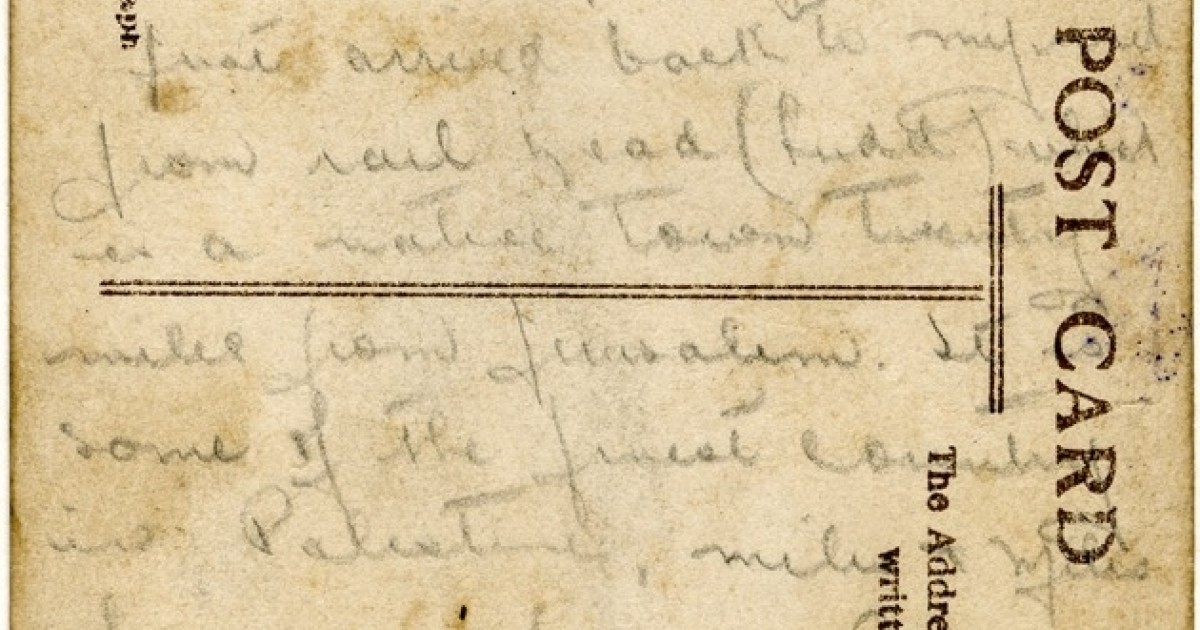 just arrived back to my
from rail head (Ludd) which
is a native town twenty
miles from Jerusalem. It is
some of the finest country
in Palestine, miles & miles
POST CARD
The Addre
writt